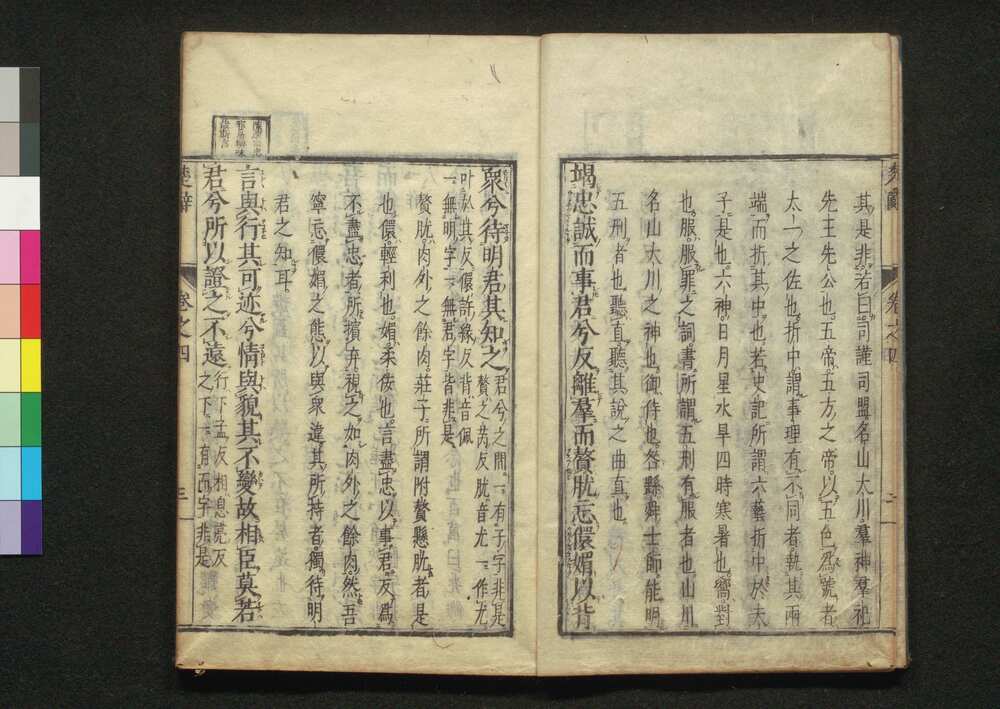 卷之四
二
其是非若曰司謹司盟名山大川羣神羣祀
先王先公也五帝五方之帝以五色爲號者
太一之佐也折中謂事理有不同者執其兩
端而折其中也若史記所謂六藝折中於夫
子是也六神日月星水旱四時寒暑也嚮對
也服服罪之詞書所謂五刑有服者也山川
名山大川之神也御侍也咎繇舜士師能明
五刑者也聽直聽其說之曲直也
竭忠誠而事君兮反離羣而贅肬忘儇媚以背
衆兮待明君其知之
君兮之間一有子字非是
贅之芮反肬音尤一作尤
叶於其反儇許緣反背音佩
一無明字一無君字皆非是
贅肬肉外之餘肉莊子所謂附贅懸肬者是
也儇輕利也媚柔佞也言盡忠以事君反爲
不盡忠者所擯弃視之如肉外之餘肉然吾
寧忘儇媚之態以與衆違其所恃者獨待明
君之知耳
言與行其可迹兮情與貌其不變故相臣莫若
君兮所以證之不遠
行下孟反相息亮反
之下一有而字非是
楚辭
卷之四
三